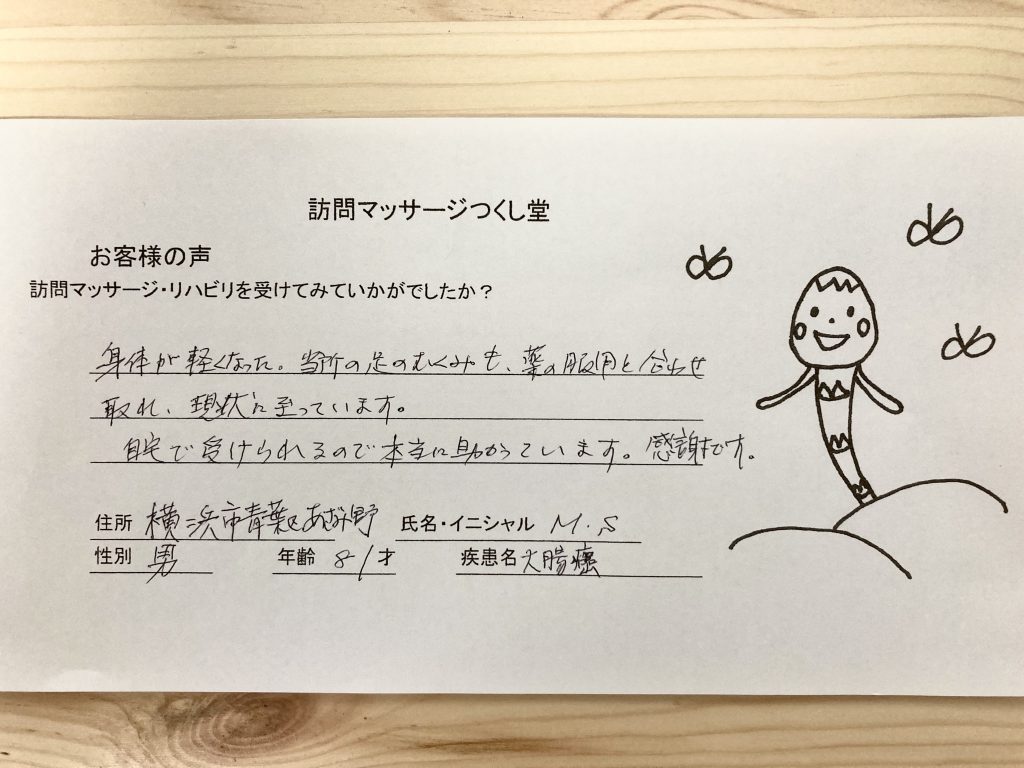 訪問マッサージつくし堂
お客様の声
訪問マッサージ・リハビリを受けてみていかがでしたか?
身体が軽くなった。当所の足のむくみも、薬の服用と合わせ
取れ、現状に至っています。
自宅で受けられるので本当に助かっています。感謝です。
住所 横浜市青葉区あざみ野 氏名・イニシャル M.S
性別 男 年齢 81才 疾患名 大腸癌